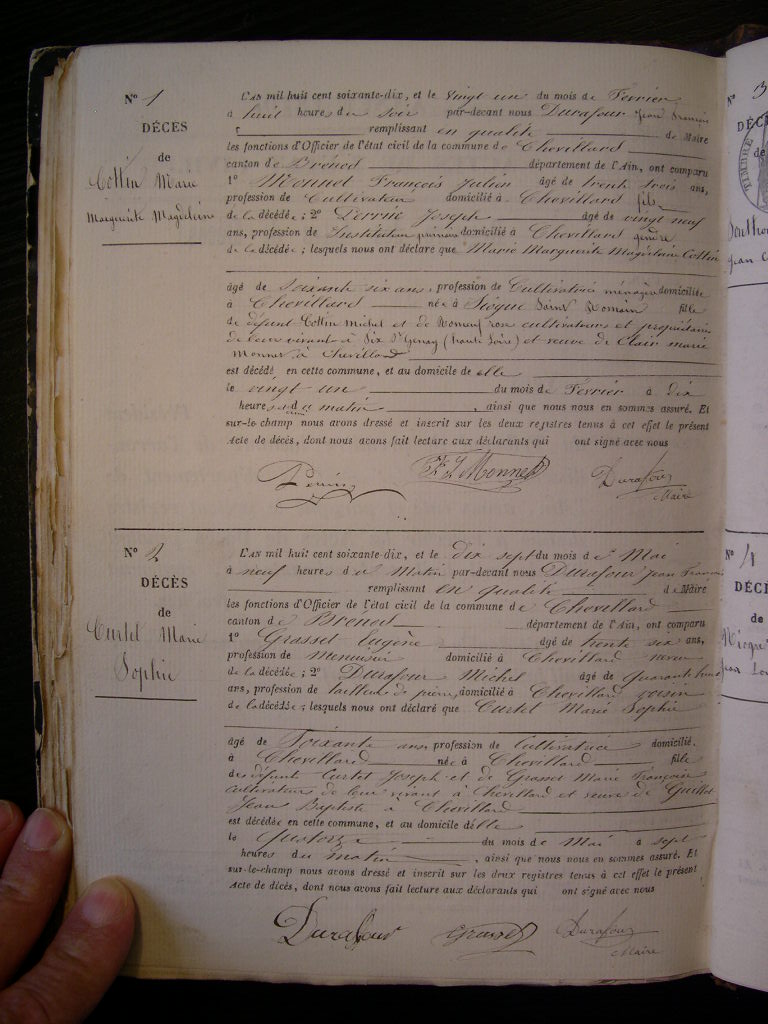 N° 1
DÉCES
de
Cottin Marie
Marguerite Magdeleine
L'AN mil huit cent soixante-dix, et le vingt un du mois de Février
à huit heures du soir par-devant nous Durafour Jean François
remplissant en qualité de Maire
les fonctions d'Officier de l'état civil de la commune de Chevillard
canton de Brénod département de l'Ain, ont comparu
1° Monnet François Julien âgé de trente trois ans,
profession de Cultivateur domicilié à Chevillard fils
de la décédée ; 2° Perrin Joseph âgé de vingt neuf
ans, profession de Instituteur primaire domicilié à Chevillard gendre
de la décédée ; lesquels nous ont déclaré que Marie Marguerite Magdelaine Cottin
âgé de soixante six ans, profession de Cultivatrice ménagère domiciliée
à Chevillard née à Saint Romain fille
de défunt Cottin Michel et de cultivateurs et propriétaires
de leur vivant à (haute Loire) et veuve de Clair marie
Monnet à Chevillard
est décédé en cette commune, et au domicile de elle
le vingt un du mois de Février à dix
heures du matin, ainsi que nous nous en sommes assuré. Et
sur-le-champ nous avons dressé et inscrit sur les deux registres tenus à cet effet le présent
acte de décès, dont nous avons fait lecture aux déclarants qui ont signé avec nous
Perrin F. J. Monnet Durafour
Maire
N° 2
DÉCÈS
de
Curtet Marie
Sophie
L'AN mil huit cent soixante-dix, et le dix sept du mois de Mai
à neuf heures du Matin par-devant nous Durafour Jean François
remplissant en qualité de Maire
les fonctions d'Officier de l'état civil de la commune de Chevillard
canton de Brénod département de l'Ain, ont comparu
1° Grasset Eugène âgé de trente six ans,
profession de Menuisier domicilié à Chevillard neveu
de la décédée ; 2° Durafour Michel âgé de quarante
ans, profession de tailleur de pierre, domicilié à Chevillard voisin
de la décédée ; lesquels nous ont déclaré que Curtet Marie Sophie
âgé de Soixante ans, profession de Cultivatrice domicilié.
à Chevillard née à Chevillard fille
des défunts Curtet Joseph et de Grasset Marie Françoise
cultivateurs de leur vivant à Chevillard et veuve de Guillot
Jean Baptiste à Chevillard
est décédée en cette commune, et au domicile d'elle
le Quatorze du mois de Mai à sept
heures du matin, ainsi que nous nous en sommes assuré. Et
sur-le-champ nous avons dressé et inscrit sur les deux registres tenus à cet effet le présent
acte de décès, dont nous avons fait lecture aux déclarants qui ont signé avec nous
Durafour Grasset Durafour
Maire
N° 3
DÉC
de
TIMBRE
Jean
N° 4
DÉCÈ
de